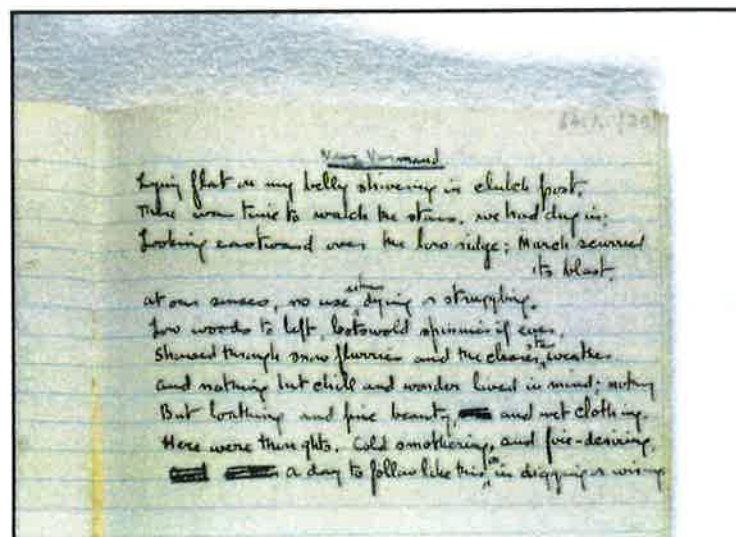 Near Vermand
Lying flat on my belly shivering in clutch frost,
There was time to watch the stars, we had dug in:
Looking eastward over the low ridge; March scurried
its blast.
at our senses, no use either dying or struggling.
Low woods to left, Cotswold spinnies if ever,
Showed through snow flurries and the clearer star weather
and nothing but chill and wonder lived in mind; nothing
But loathing and fine beauty, and wet clothing.
Here were thoughts. Cold smothering, and fire-desiring,
a day to follow like this, or in digging or wiring